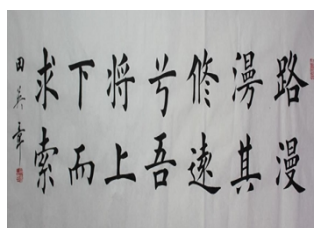 路漫
漫其
修遠
兮吾
将上
下而
求索
田英章